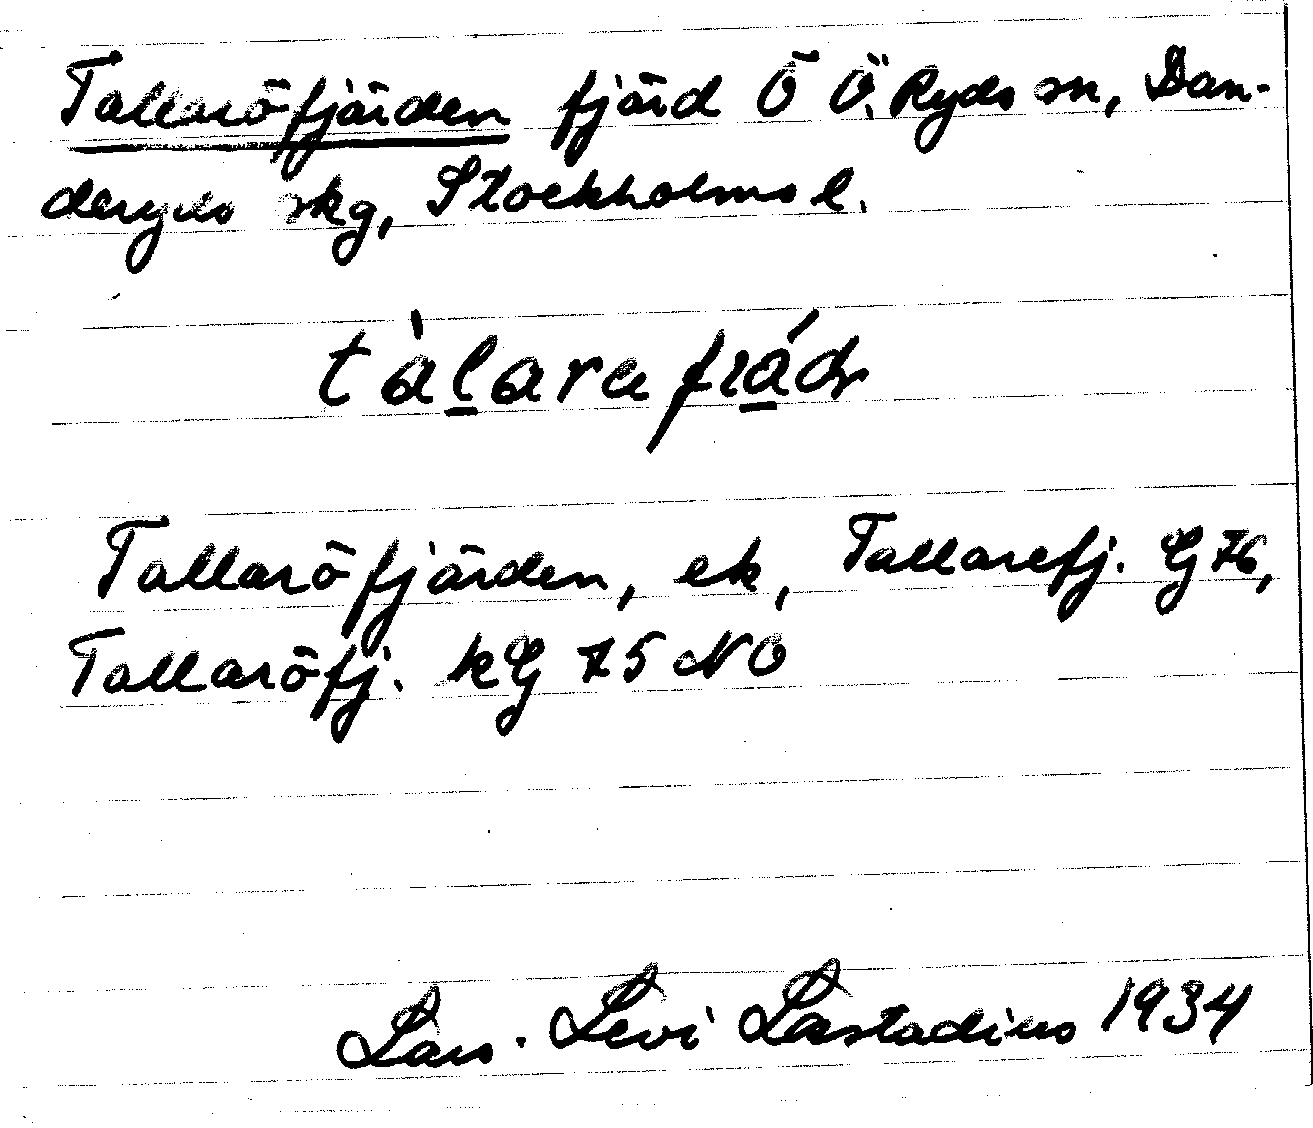 Tallaröfjärden fjärd Ö Ö. Ryds sn, Dan-
deryds skg, Stockholms l.
Tallaröfjärden, ek, Tallarefj. G 76,
Tallaröfj. kG 75 NO
Lars. Levi Læstadius 1934